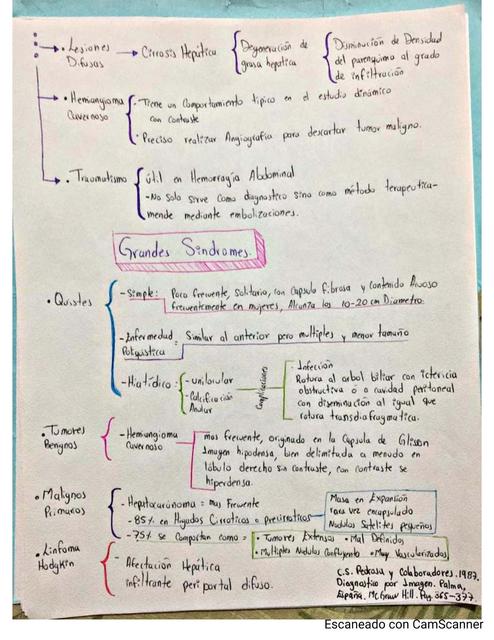 • Lesiones Difusas → Cirrosis Hepática
Degeneración de grasa hepatica
Disminución de Densidad
del parenquimo al grado
de infiltración
• Hemangioma Cavernoso
· Tiene un Comportamiento típico en el estudio dinámico
con contraste
· Preciso realizar Angiografia para descartar tumor maligno.
• Traumatismo
útil en Hemorragia Abdominal
- No solo sirve como diagnostico sino como método terapeutica-
mende mediante embolizaciones.
Grandes Síndromes.
• Quistes
- Simple: Poco frecuente, Solitario, con Capsula fibrosa y contenido Acuoso
frecuentemente en mujeres, Alcanza los 10-20 cm Diametro.
- Enfermedad Poliquistica : Similar al anterior pero multiples y menor tamaño
- Hidatídico:
- unilocular
- Calcificación
Anular
Complicaciones
· Infección
Rotura al arbol biliar con ictericia
obstructiva ó a cavidad peritoneal
con diseminación al igual que
rotura transdiafragmatica.
• Tumores Benignos
- Hemangioma Cavernoso
mas frecuente, originado en la Capsula de Glisson
Imagen hipodensa, bien delimitada a menudo en
lóbulo derecho sin contraste, con contraste se
hiperdensa.
• Malignos Primarios
- Hepatocarcinoma = mas Frecuente
- 85% en Higados Cirroticos o precirroticos
- 75% se Comportan como =
Masa en Expansión
rara vez encapsulado
Nodulos Satelites pequeños
• Tumores Extensos • Mal Definidos
• Multiples Nodulos Confluyendo • Muy Vascularizados
• Linfoma Hodgkin
- Afectación Hepática
infiltrante periportal difuso.
C.S. Pedrosa y Colaboradores. 1987.
Diagnostico por Imagen. Palma,
España. McGraw Hill. Pag 365-377.
Escaneado con CamScanner